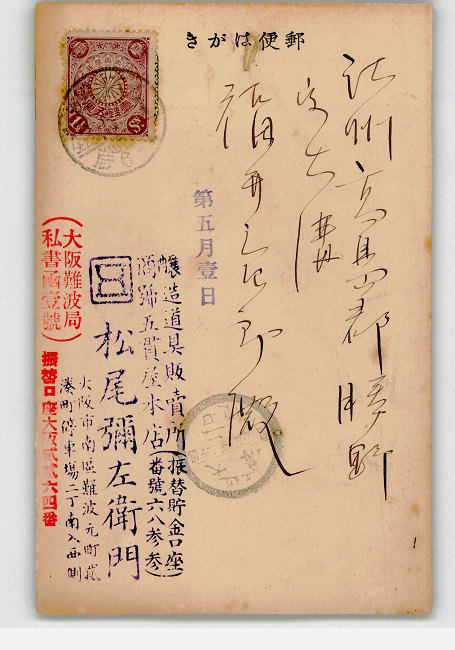 郵便はがき
江州高島郡勝野
大溝
福井
郎殿
第五月壹日
醸造道具販賣所(振替貯金口座
商號五貫屋本店(番號六八参参)
松尾彌左衛門
大阪市南區難波元町貮
湊町停車場二丁南入西側
大阪難波局
私書函壹號
振替口座大阪貳貳六四番